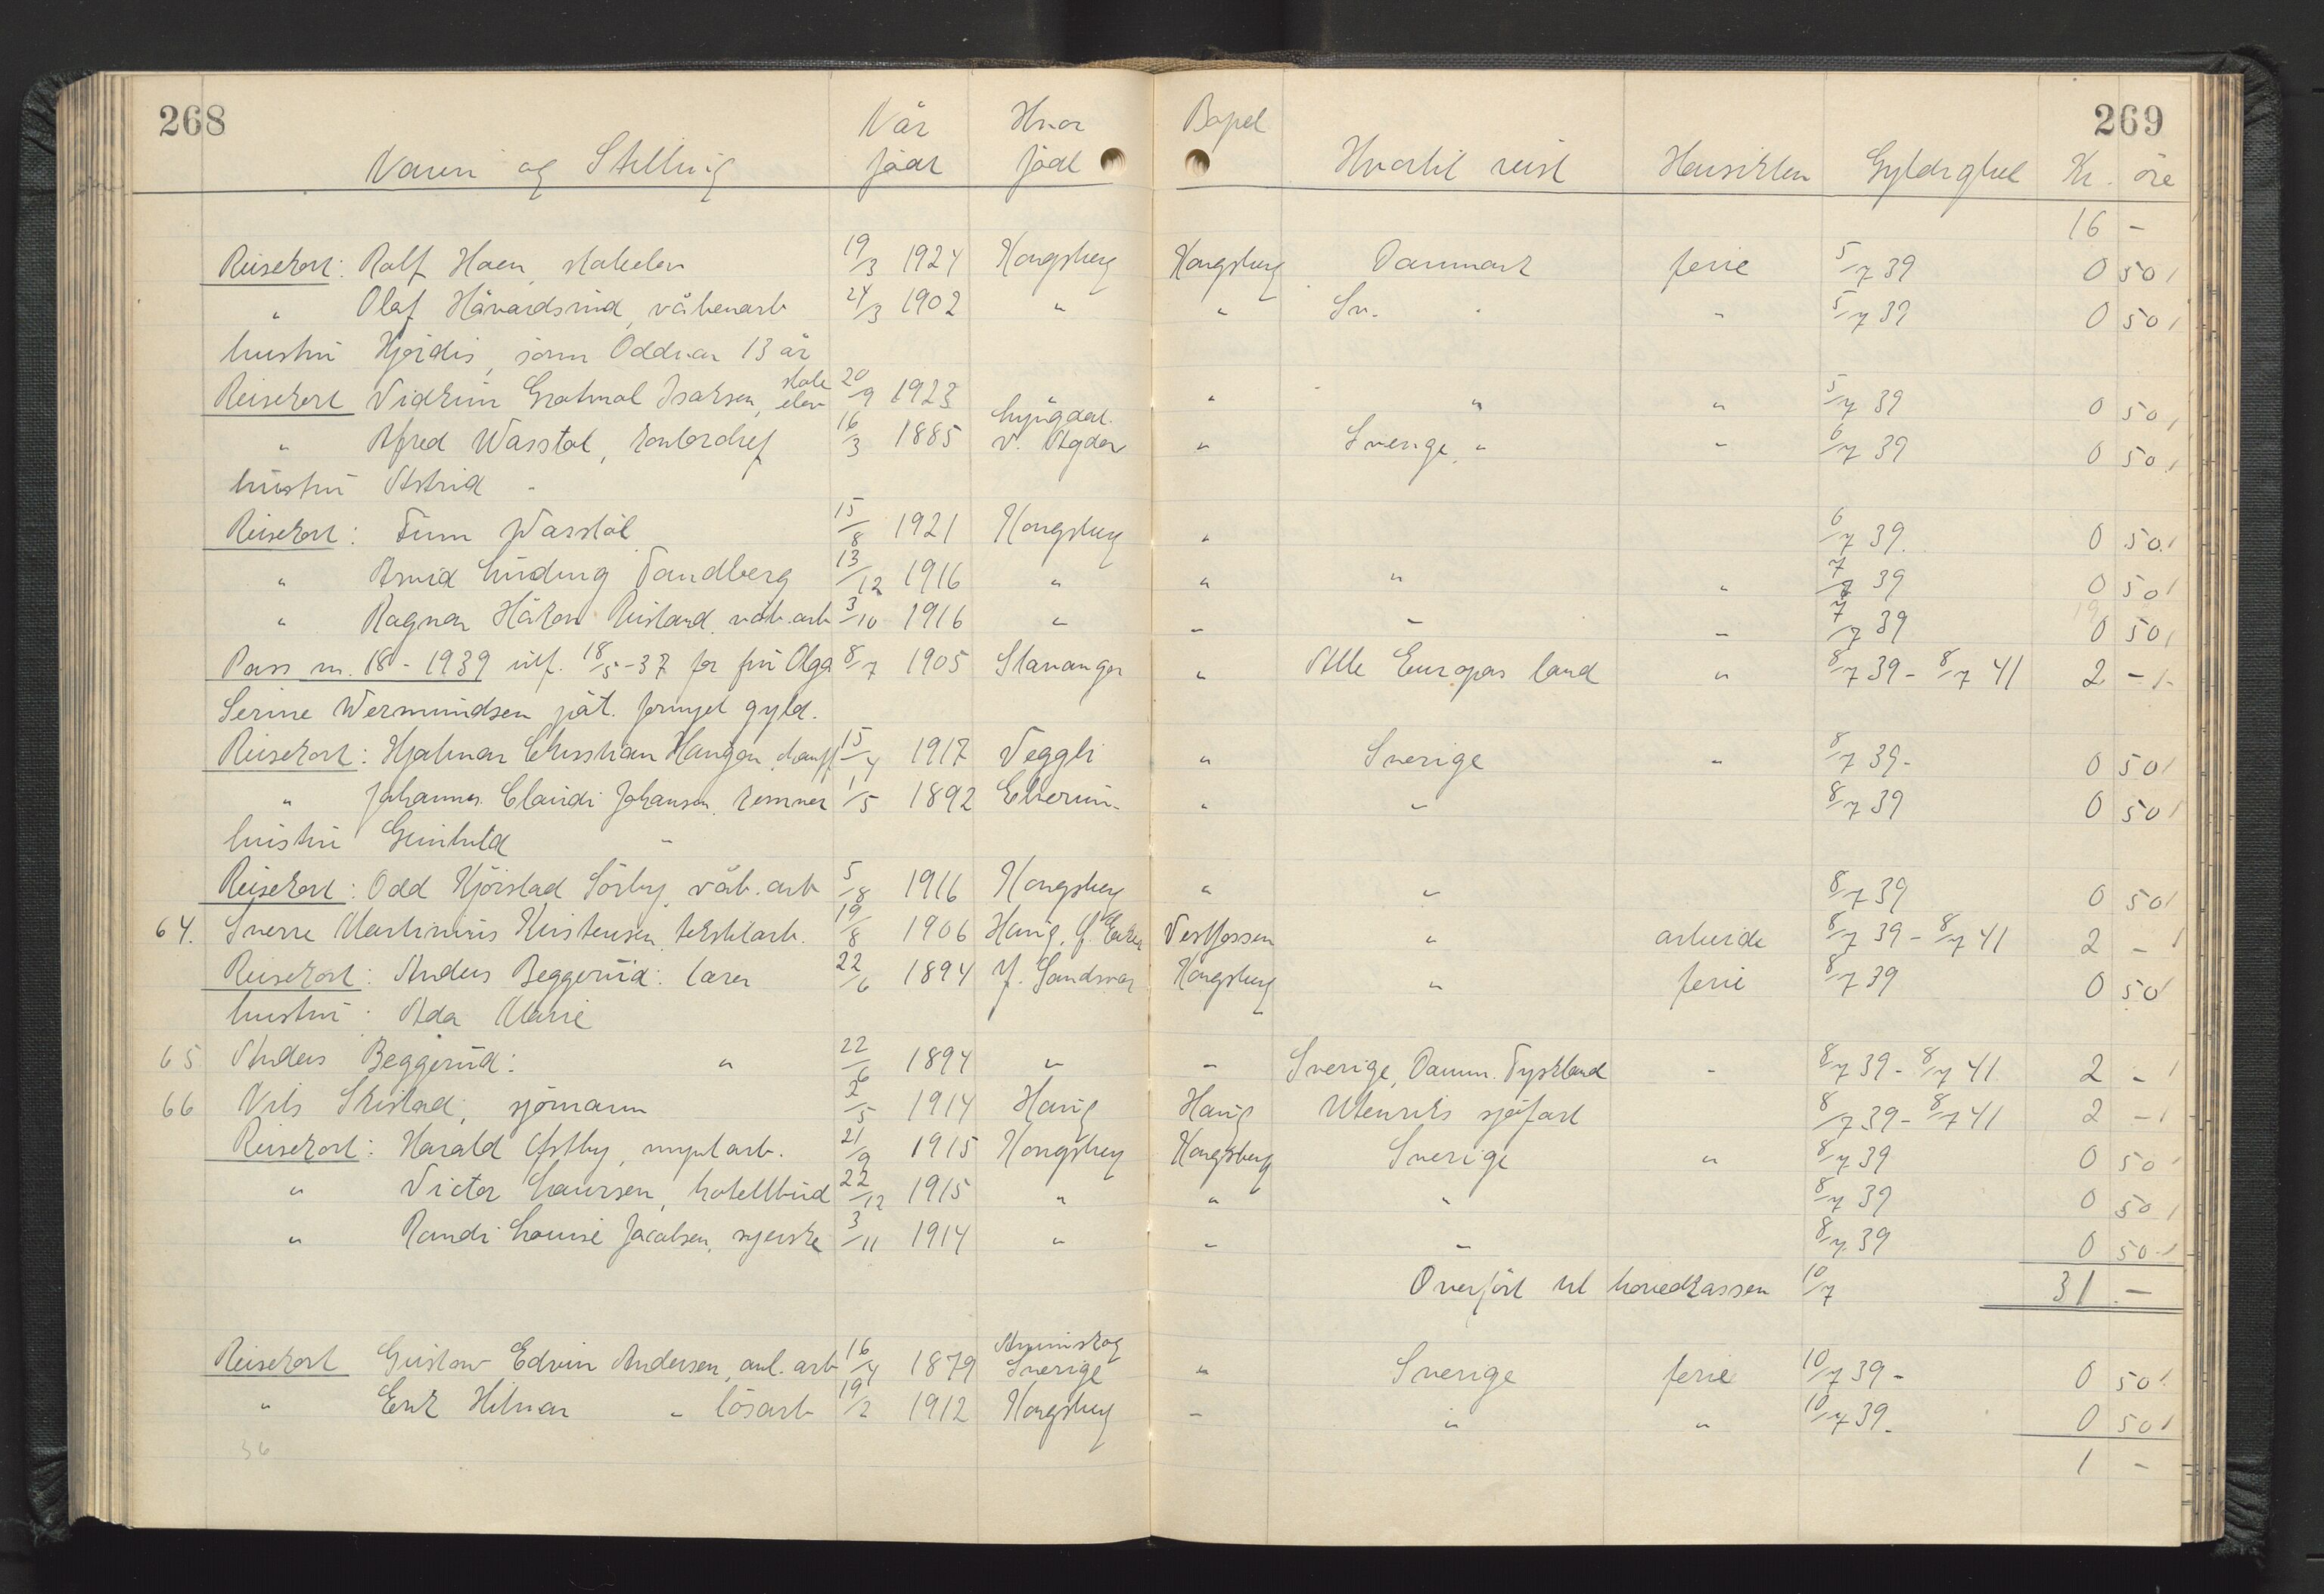 268
269
Når Hvor Bopel
Navn og Stilling født født Hvortil reist Hensikten Gyldighet Kr. øre
16 -
Reisekort: Rolf Haen, skoleelev 19/3 1924 Kongsberg Kongsberg Danmark ferie 5/7 39 0 50
" Olaf Håvardsrud, våbenarb 24/3 1902 " " Sv. " 5/7 39 0 50
hustru Hjørdis, sønn Oddvar 13 år
Reisekort Vidkun Isaksen, skoleelev 20/9 1923 " " " 5/7 39 0 50
" Alfred Wasstøl, kontorchef 16/3 1885 Lyngdal V. Agder " Sverige " " 6/7 39 0 50
hustru Astrid "
Reisekort: Finn Wasstøl 15/8 1921 Kongsberg " 6/7 39 0 50
" Arvid Ludvig Sandberg 13/12 1916 " " " " 7/7 39 0 50
" Ragnar Håkon Ruland våb.arb 3/10 1916 " " " " 7/7 39 0 50
Pass nr. 18 - 1939 utf. 18/5-37 for fru Olga 8/7 1905 Stavanger " Alle Europas land " 8/7 39 - 8/7 41 2 -
Serine Wermundsen påt. fornyet gyld.
Reisekort: Hjalmar Christian Haugen, chauff 15/4 1917 Veggli " Sverige " 8/7 39 - 0 50
" Johannes Claudi Johansen, kemner 1/5 1892 Elverum " " 8/7 39 0 50
hustru Gunhild "
Reisekort: Odd Kjørstad Sørby, våb.arb 5/8 1916 Kongsberg " " 8/7 39 0 50
64. Sverre Martinius Kristensen, tekstilarb. 19/8 1906 Haug, Ø. Eiker Vestfossen " arbeide 8/7 39 - 8/7 41 2 -
Reisekort: Anders Beggerud: lærer 22/6 1894 Y. Sandsvær Kongsberg " ferie 8/7 39 0 50
hustru: Ada Marie
65 Anders Beggerud: " 22/6 1894 " " Sverige, Danm. Tyskland " 8/7 39 - 8/7 41 2 -
66 Nils Skistad, sjømann 2/5 1914 Haug Haug Utenriks sjøfart 8/7 39 - 8/7 41 2 -
Reisekort: Harald Østby, myntarb. 21/9 1915 Kongsberg Kongsberg Sverige " 8/7 39 0 50
" Victor Laursen, hotellbud 22/12 1915 " " " 8/7 39 0 50
" Randi Louise Jacobsen, syerske 3/11 1914 " " " 8/7 39 0 50
Overført til hovedkassen 10/7 31 -
Reisekort Gustav Edvin Andersen, anl. arb 16/4 1879 Ånimskog Sverige " Sverige ferie 10/7 39 - 0 50
" Erik Hilmar " løsarb 19/2 1912 Kongsberg " " " 10/7 39 - 0 50
36 1 -